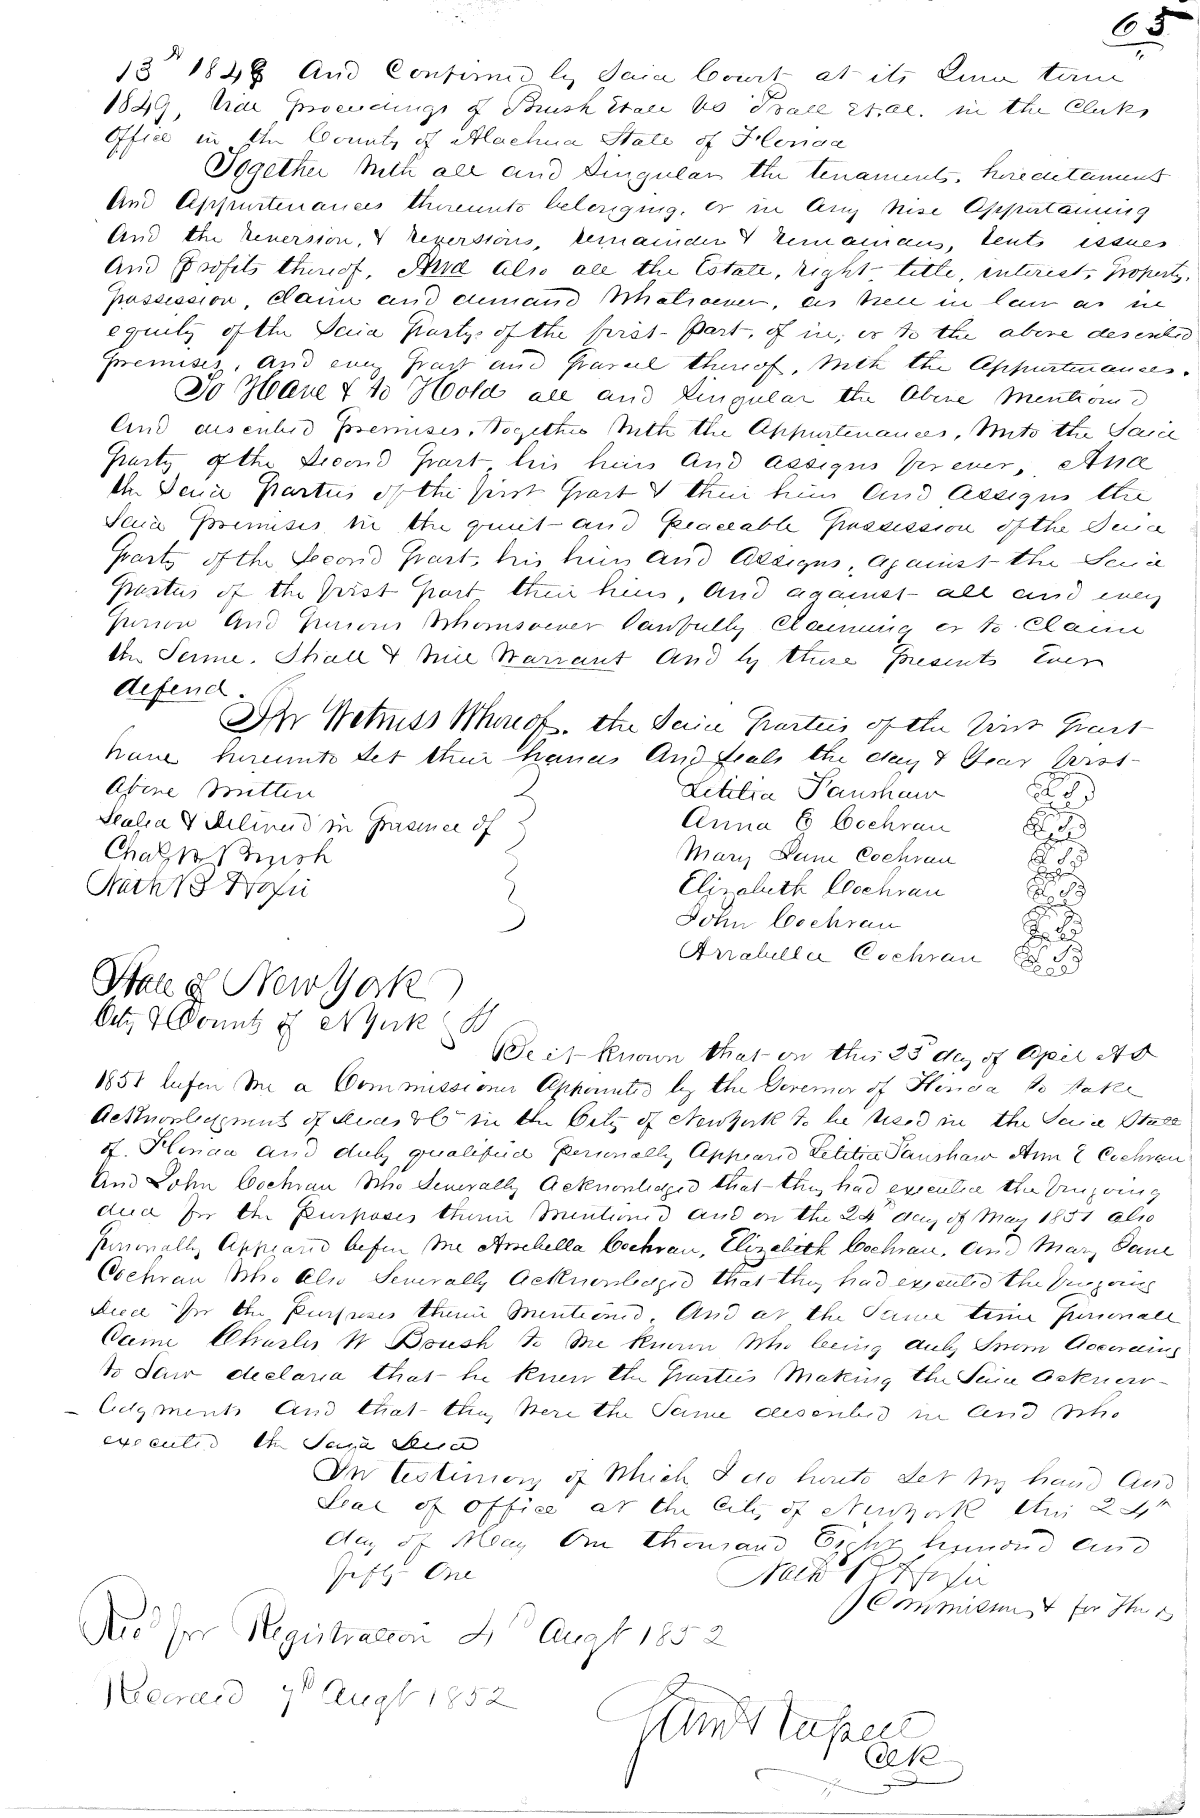 65
13th 1848 And Confirmed by Said Court at its June term
1849, Vide proceedings of Brush Et all vs Prall et. al. in the Clerks
Office in the County of Alachua State of Florida
Together With all and Singular the tenaments, hereditaments
And Appurtenances thereunto belonging, or in Any Wise Appertaining
And the reversion, & reversions, remainder & remainders, rents issues
And Profits thereof, And also all the Estate, right title, interest, Property,
Possession, claim and demand Whatsoever, as Well in law as in
equity of the Said Party of the first Part, of in, or to the above described
premises, and every Part and Parcel thereof, With the Appurtenances.
To Have & to Hold all and Singular the Above Mentioned
And described Premises, together With the Appurtenances, Unto the Said
Party of the Second Part, his heirs and assigns forever, And
the Said Parties of the first Part & their heirs And Assigns the
Said Premises in the quiet and Peaceable Possession of the Said
Party of the Second Part, his heirs and Assigns, against the Said
Parties of the first Part their heirs, And against all and every
Person And Persons Whomsoever lawfully Claiming or to Claim
the Same. Shall & Will Warrant And by these Presents Ever
defend.
In Witness Whereof, the Said Parties of the first Part
have hereunto Set their hands And Seals the day & Year first
Above Written
Sealed & Delivered in Presence of
Chas W Brush
Nath B Hoxie
Letitia Fanshaw
Anna E Cochran
Mary Jane Cochran
Elizabeth Cochran
John Cochran
Arrabella Cochran
State of New York
City & County of N York SS
Be it known that on this 23d day of April AD
1851 before Me a Commissioner Appointed by the Governor of Florida to take
Acknowledgments of Deeds &c in the City of New York to be Used in the Said State
of Florida and duly qualified Personally Appeared Letitia Fanshaw Ann E Cochran
And John Cochran Who Severally Acknowledged that they had executed the foregoing
deed for the Purposes therein Mentioned and on the 24th day of May 1851 also
Personally Appeared before Me Arrebella Cochran, Elizabeth Cochran, and Mary Jane
Cochran Who Also Severally Acknowledged that they had executed the foregoing
Deed for the Purposes therein Mentioned, And at the Same time Personall
Came Charles W Brush to Me known Who being duly Sworn According
to Law declared that he knew the Parties Making the Said Acknow-
- ledgments And that they Were the Same described in and Who
executed the Said Deed
In testimony of Which I do hereto Set My hand And
Seal of Office at the City of New York this 24th
day of May One thousand Eight hundred and
fifty One
Nath B Hoxie
Commissioner for
Recd for Registration 4th Augt 1852
Recorded 7th Augt 1852
Clk